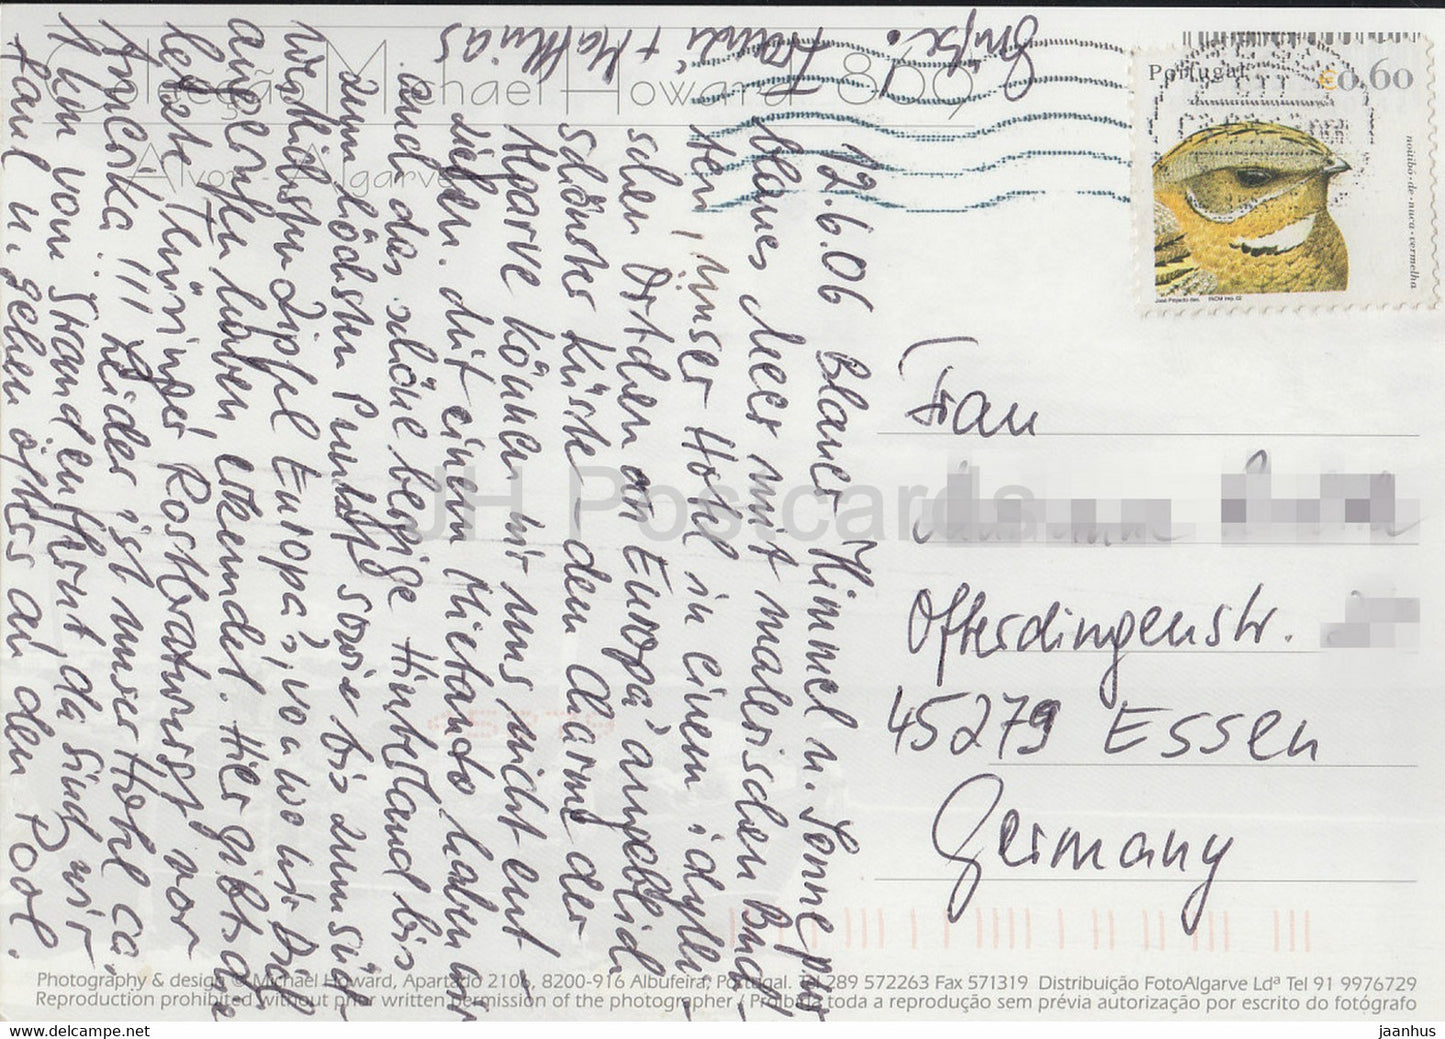 Colecção Michael Howard 869
Alvor - Algarve
Portugal
€0.60
noitibó-de-nuca-vermelha
José Projecto des. INCM imp. 02
12.6.06 Blauer Himmel u. Sonne pur,
blaues Meer mit malerischen Buch-
ten, unser Hotel in einem idylli-
schen Örtchen an Europa's angeblich
schönster Küste – dem Charme der
Algarve können wir uns nicht ent
ziehen. Mit einem Mietauto haben wir
auch das schöne bergige Hinterland bis
zum höchsten Punkt sowie bis zum süd-
westlichsten Zipfel Europa's, wo wir Dtl.
angerufen haben, erkundet. Hier gibt's die
"letzte Thüringer Rostbratwurst vor
Amerika"!!! Leider ist unser Hotel ca.
1 km vom Strand entfernt, da sind wir
faul u. gehen öfters an den Pool.
Grüße.
Heidi + Matthias
Frau
Ofterdingenstr.
45279 Essen
Germany
JH Postcards
Photography & design © Michael Howard, Apartado 2106, 8200-916 Albufeira, Portugal. Tel 289 572263 Fax 571319 Distribuição FotoAlgarve Ldª Tel 91 9976729
Reproduction prohibited without prior written permission of the photographer / Proibida toda a reprodução sem prévia autorização por escrito do fotógrafo
www.delcampe.net
jaanhus